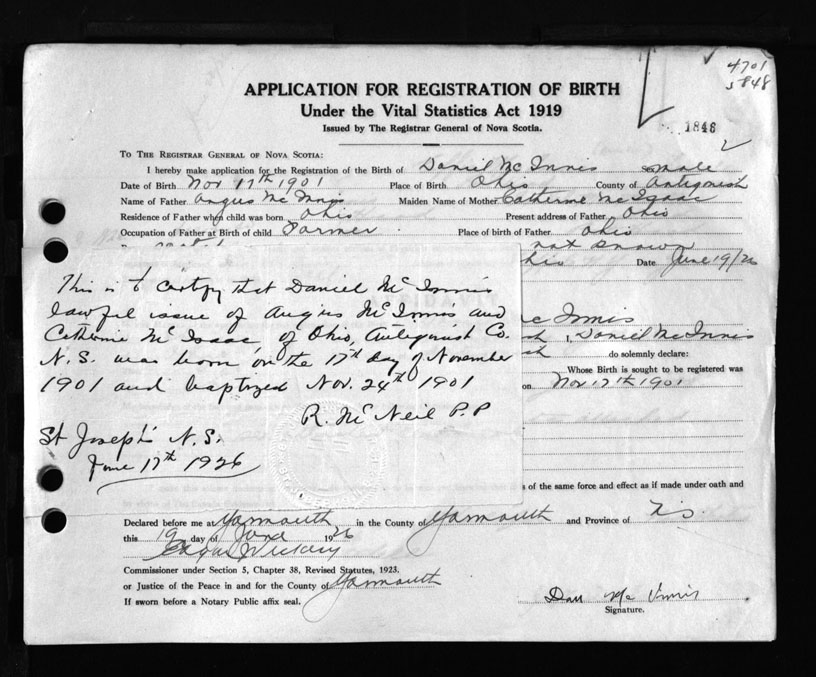 4701
5848
1848
APPLICATION FOR REGISTRATION OF BIRTH
Under the Vital Statistics Act 1919
Issued by The Registrar General of Nova Scotia.
TO THE REGISTRAR GENERAL OF NOVA SCOTIA:
I hereby make application for the Registration of the Birth of Daniel Mc Innis male
Date of Birth Nov 17th 1901 Place of Birth Ohio County of Antigonish
Name of Father Angus Mc Innis Maiden Name of Mother Catherine Mc Isaac
Residence of Father when child was born Ohio Present address of Father Ohio
Occupation of Father at Birth of child Farmer Place of birth of Father Ohio
not known
Date June 19/26
This is to certify that Daniel Mc Innis
lawful issue of Angus Mc Innis and
Catherine Mc Isaac of Ohio, Antigonish Co.
N.S. was born on the 17th day of November
1901 and baptized Nov. 24th 1901
R. McNeil P.P
St Joseph N.S.
June 17th 1926
Innis
Daniel McInnis
do solemnly declare:
Whose Birth is sought to be registered was
on Nov 17th 1901
of the same force and effect as if made under oath and
Declared before me at Yarmouth in the County of Yarmouth and Province of N.S.
this 19 day of June 1926
Commissioner under Section 5, Chapter 38, Revised Statutes, 1923.
or Justice of the Peace in and for the County of Yarmouth
If sworn before a Notary Public affix seal.
Dan Mc Innis
Signature.